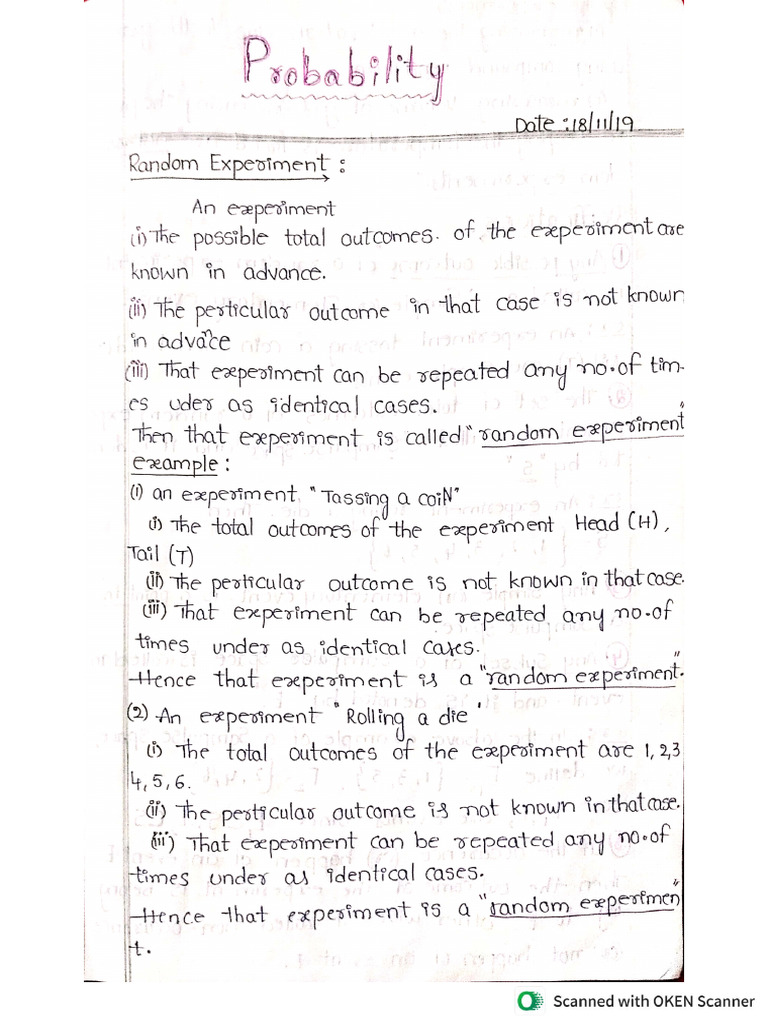 Probability
Date :18/11/19
Random Experiment :
An experiment
(i) The possible total outcomes. of the experiment are
known in advance.
(ii) The perticular outcome in that case is not known
in advance
(iii) That experiment can be repeated any no.of tim-
es uder as identical cases.
Then that experiment is called "random experiment"
example :
(1) an experiment "Tassing a coiN"
(i) The total outcomes of the experiment Head (H),
Tail (T)
(ii) The perticular outcome is not known in that case.
(iii) That experiment can be repeated any no.of
times under as identical cases.
Hence that experiment is a "random experiment".
(2) An experiment "Rolling a die"
(i) The total outcomes of the experiment are 1, 2, 3
4, 5, 6.
(ii) The perticular outcome is not known in that case.
(iii) That experiment can be repeated any no.of
times under as identical cases.
Hence that experiment is a "random experimen"
t.
Scanned with OKEN Scanner